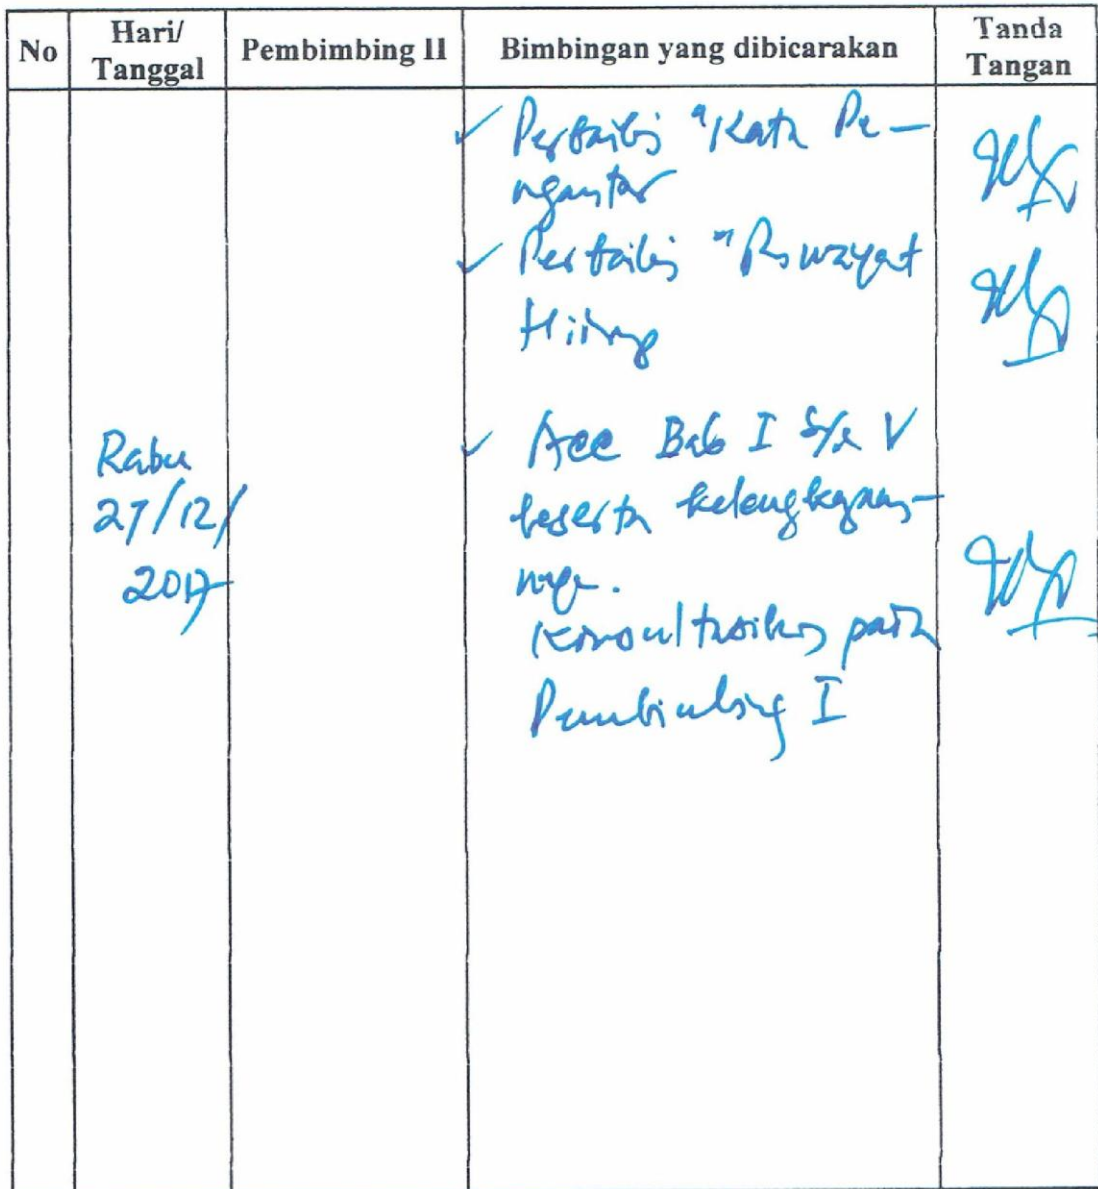 No Hari/ Tanggal Pembimbing II Bimbingan yang dibicarakan Tanda Tangan
✓ Perbaiki "Kata Pe-
ngantar
✓ Perbaiki "Riwayat
Hidup
✓ Acc Bab I s/d V
Rabu
27/12/
2017
beserta kelengkapan-
nya.
Konsultasikan pada
Pembimbing I